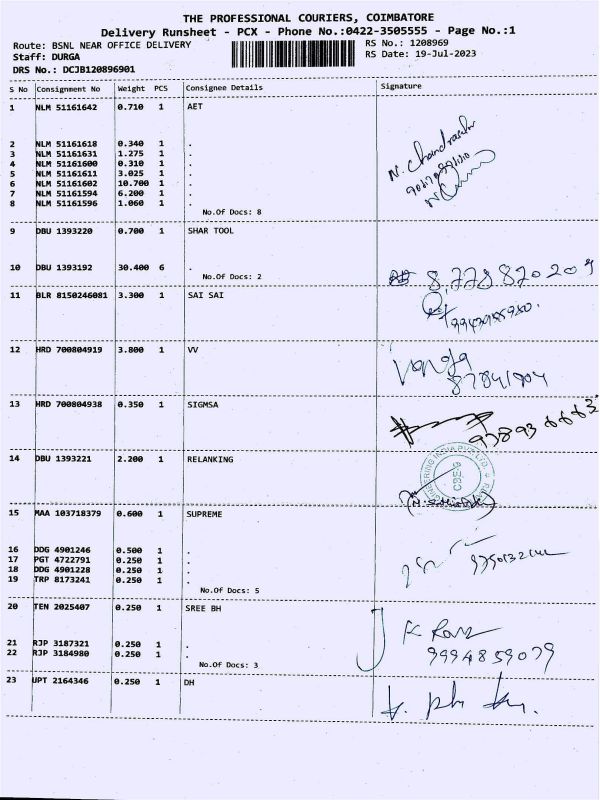 THE PROFESSIONAL COURIERS, COIMBATORE
Delivery Runsheet - PCX - Phone No.:0422-3505555 - Page No.:1
Route: BSNL NEAR OFFICE DELIVERY RS No.: 1208969
Staff: DURGA RS Date: 19-Jul-2023
DRS No.: DCJB120896901
S No Consignment No Weight PCS Consignee Details Signature
1 NLM 51161642 0.710 1 AET
2 NLM 51161618 0.340 1 .
3 NLM 51161631 1.275 1 .
4 NLM 51161600 0.310 1 .
5 NLM 51161611 3.025 1 .
6 NLM 51161602 10.700 1 .
7 NLM 51161594 6.200 1 .
8 NLM 51161596 1.060 1 .
No.Of Docs: 8
N. Chandrasekar
9 DBU 1393220 0.700 1 SHAR TOOL
10 DBU 1393192 30.400 6 .
No.Of Docs: 2
8,778870209
11 BLR 8150246081 3.300 1 SAI SAI
12 HRD 700804919 3.800 1 VV
13 HRD 700804938 0.350 1 SIGMSA
14 DBU 1393221 2.200 1 RELANKING
15 MAA 103718379 0.600 1 SUPREME
16 DDG 4901246 0.500 1 .
17 PGT 4722791 0.250 1 .
18 DDG 4901228 0.250 1 .
19 TRP 8173241 0.250 1 .
No.Of Docs: 5
20 TEN 2025407 0.250 1 SREE BH
21 RJP 3187321 0.250 1 .
22 RJP 3184980 0.250 1 .
No.Of Docs: 3
9994859079
23 UPT 2164346 0.250 1 DH